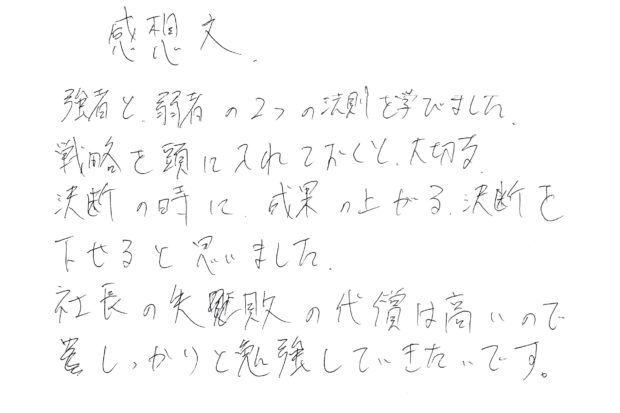 感想文.
強者と、弱者の2つの法則を学びました、
戦略を頭に入れておくと、大切な
決断の時に、成果の上がる、決断を
下せると思いました、
社長の失敗の代償は高いので
しっかりと勉強していきたいです。